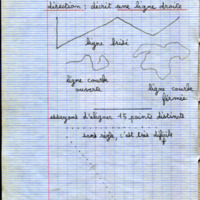 direction : décrit une ligne droite
ligne brisée
ligne courbe
ouverte
ligne courbe
fermée
essayons d'aligner 15 points distincts
sans règle, c'est très difficile